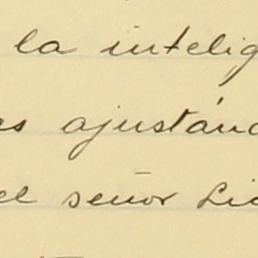 la intelig
as ajustánd
el señor Lic